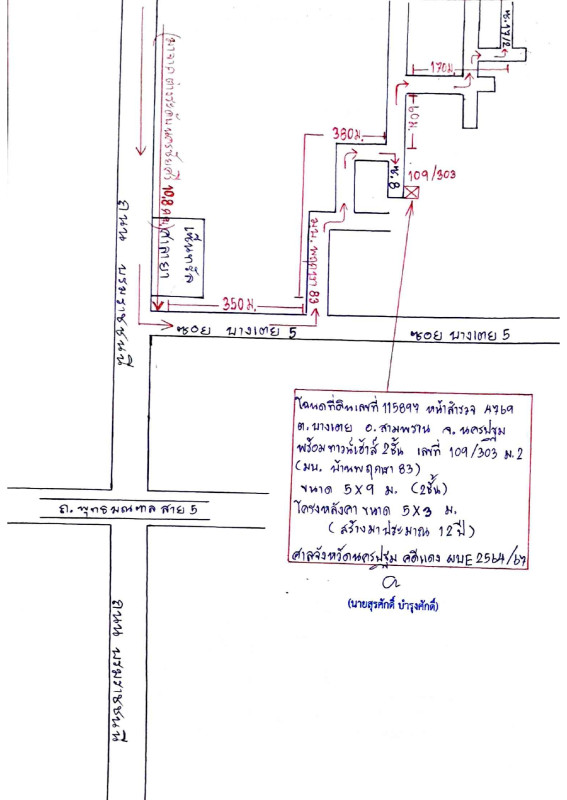 ซ.17/2
170ม.
60ม.
380ม.
ซ.8
109/303
10.8 กม.
ศาลายา
ถนน บรมราชชนนี
มบ. พฤกษา 83
350 ม.
ซอย บางเตย 5
ซอย บางเตย 5
โฉนดที่ดินเลขที่ 115897 หน้าสำรวจ 4769
ต. บางเตย อ. สามพราน จ. นครปฐม
พร้อมทาวน์เฮ้าส์ 2ชั้น เลขที่ 109/303 ม.2
(มบ. บ้านพฤกษา 83)
ขนาด 5X9 ม. (2ชั้น)
โครงหลังคา ขนาด 5X3 ม.
(สร้างมาประมาณ 12ปี)
ศาลจังหวัดนครปฐม คดีแดง ผบE2564/67
(นายสุรศักดิ์ บำรุงศักดิ์)
ถ. พุทธมณฑล สาย 5
ถนน บรมราชชนนี